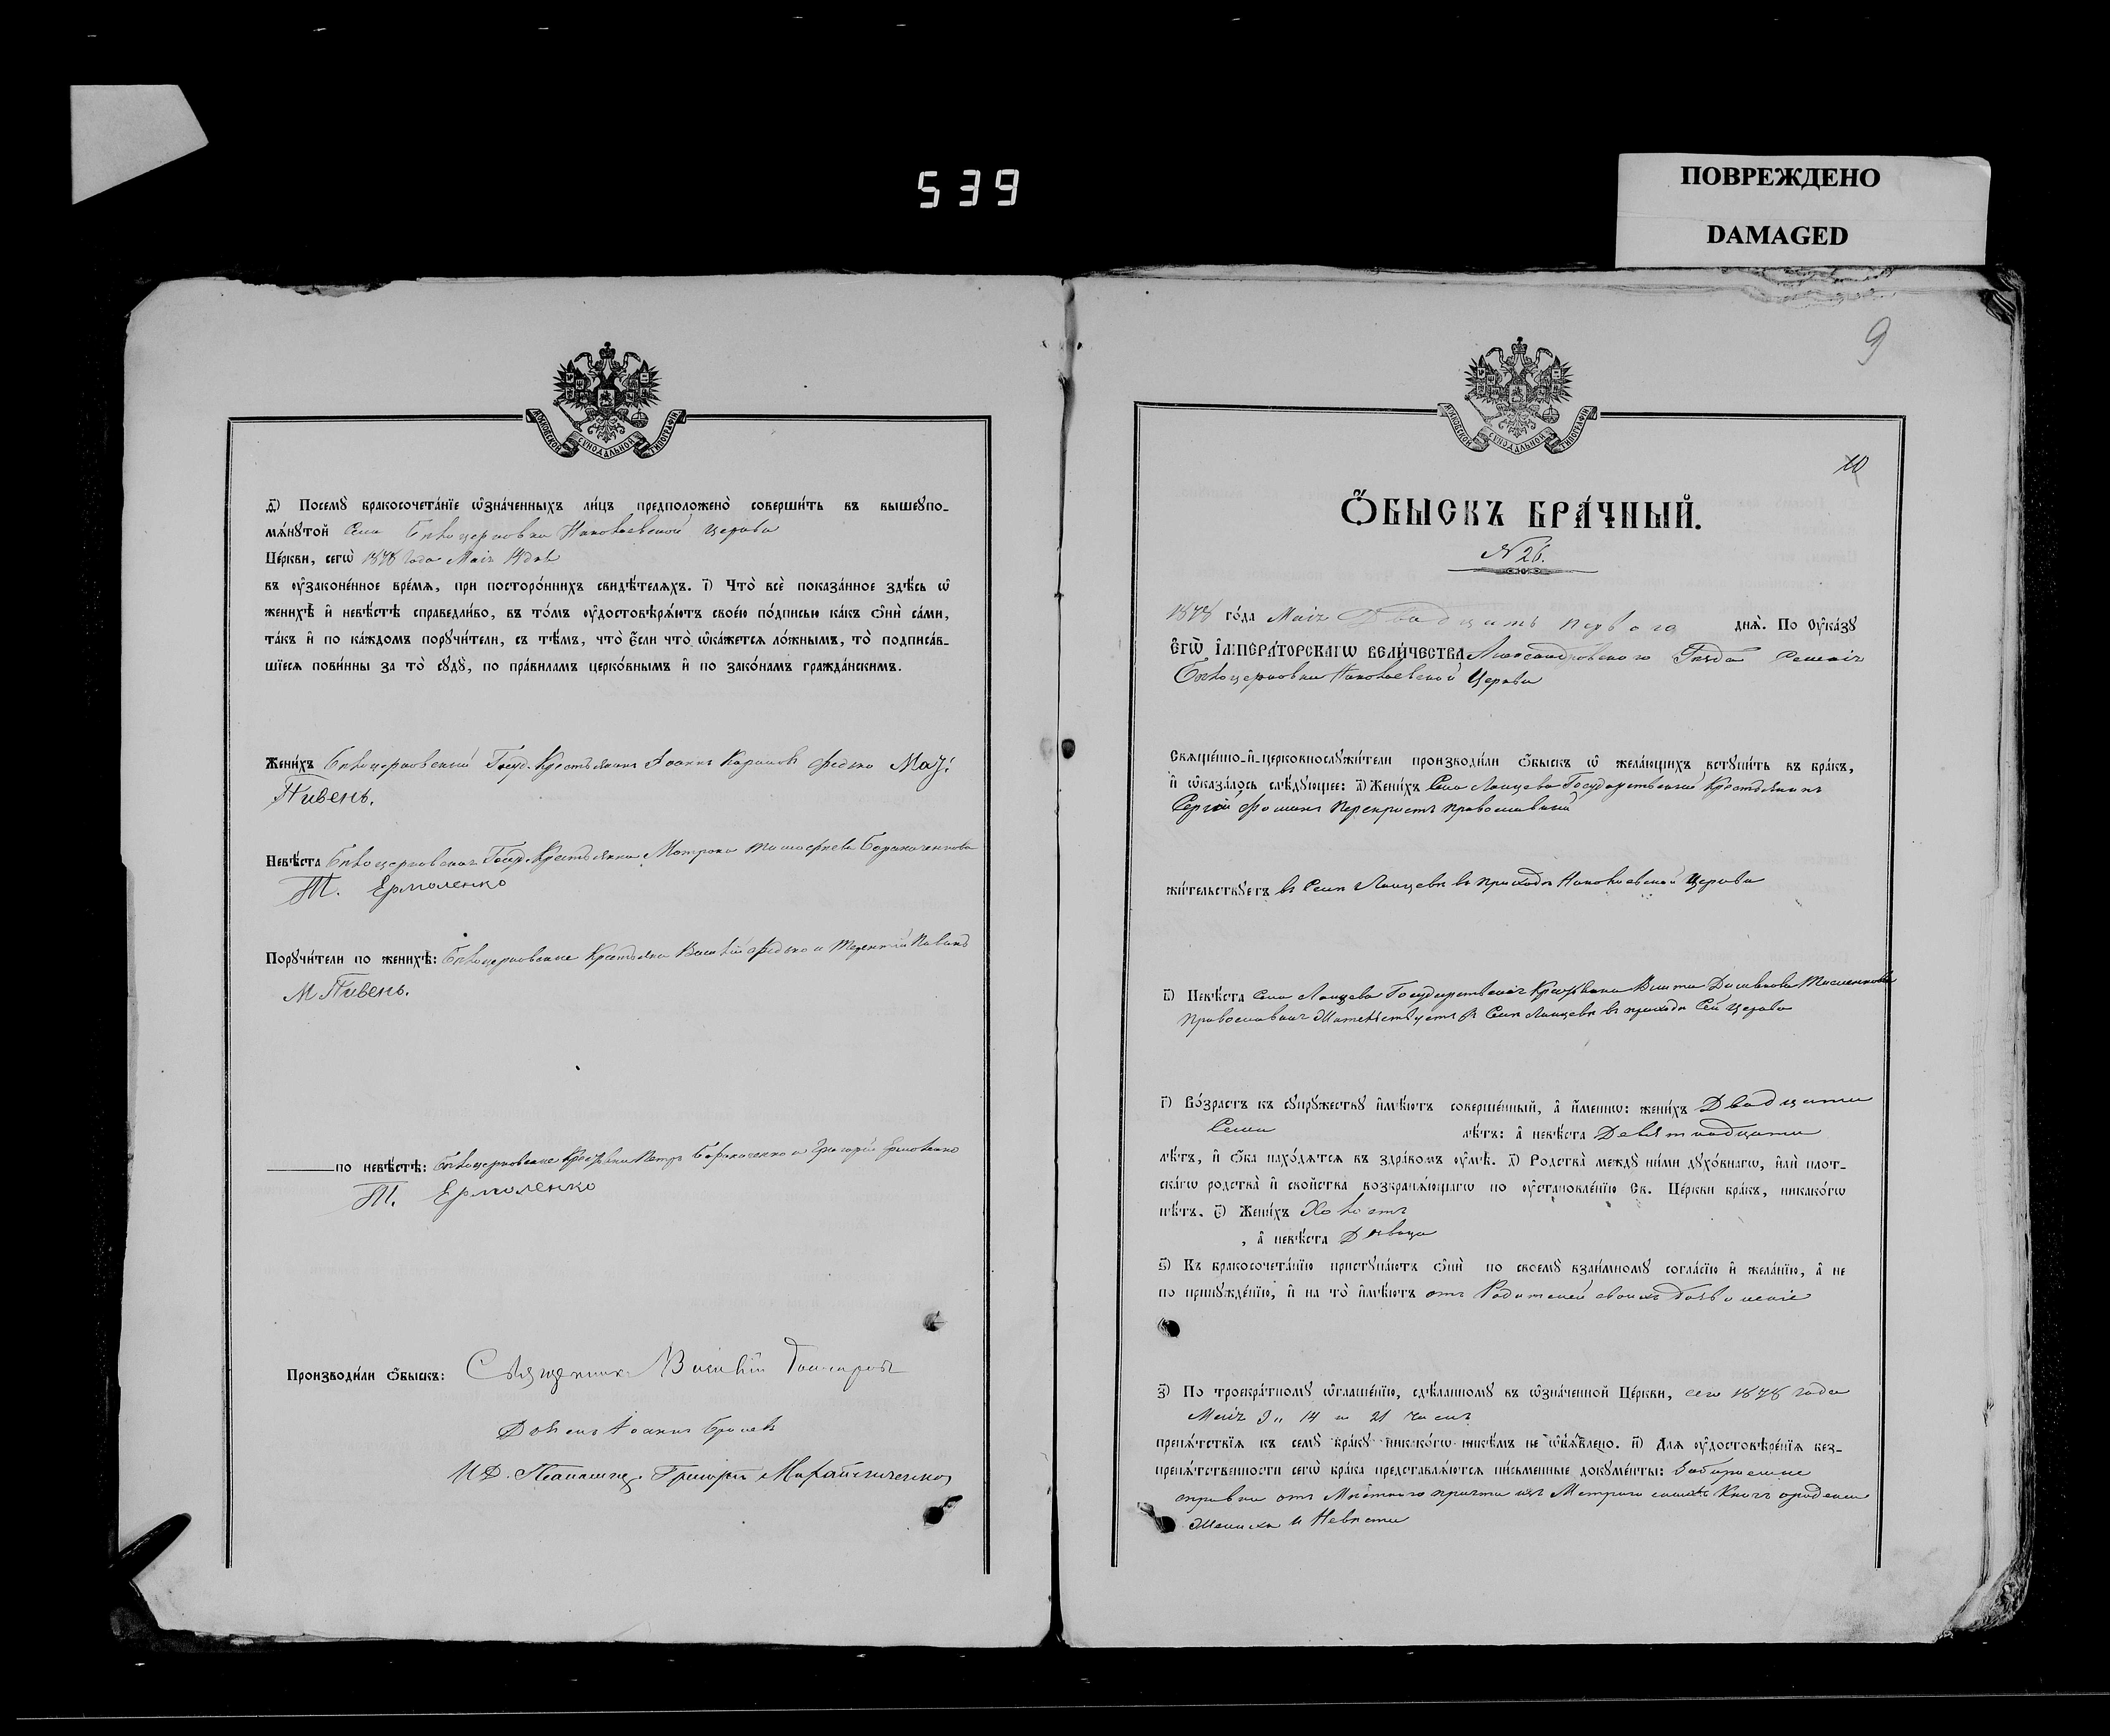 539
ПОВРЕЖДЕНО
DAMAGED
МОСКОВСКОЙ СУНОДАЛЬНОЙ ТИПОГРАФІИ
д҃) Посемꙋ̀ бракосочета́нїе ѡ҆зна́ченныхъ ли́цъ предположено̀ соверши́ть въ вышеꙋпо-
мѧ́нꙋтой Села Бѣлоцерковки Николаевской Церкви
Це́ркви, сегѡ̀ 1878 года Маія 14 дня
въ ᲂу҆законе́нное вре́мѧ, при посторо́ннихъ свидѣ́телѧхъ. і҃) Что̀ всѐ показа́нное здѣ́сь ѡ҆
женихѣ̀ и҆ невѣ́стѣ справедли́во, въ то́мъ ᲂу҆достовѣрѧ́ютъ свое́ю по́дписью ка́къ ѻ҆нѝ са́ми,
та́къ и҆ по ка́ждомъ порꙋчи́тели, съ тѣ́мъ, что̀ є҆́сли что̀ ѡ҆ка́жетсѧ ло́жнымъ, то̀ подписа́в-
шїесѧ пови́нны за то̀ сꙋдꙋ̀, по пра́виламъ церко́внымъ и҆ по зако́намъ гражда́нскимъ.
Жени́хъ Бѣлоцерковскій Госуд. Крестьянинъ Іоаннъ Карповъ Федько
Пивень.
Невѣ́ста Бѣлоцерковская Госуд. Крестьянка Матрона Тимофеева
Т. Ермоленко
Порꙋчи́тели по женихѣ̀: Бѣлоцерковские Крестьяне Василій Федько и Терентій
М Пивень.
по невѣ́стѣ: Бѣлоцерковские Крестьяне Петръ и Григорій Ермоленко
Т. Ермоленко
Производи́ли ѻ҆́быскъ: Священникъ Василій
Дьяконъ Іоаннъ
И Д. Псаломщ. Григорій
9
10
МОСКОВСКОЙ СУНОДАЛЬНОЙ ТИПОГРАФІИ
Ѻ҆́БЫСКЪ БРА́ЧНЫЙ.
№ 26.
1878 го́да Маія Двадцать перваго днѧ̀. По ᲂу҆ка́зꙋ
Е҆гѡ̀ І҆мпера́торскагѡ вели́чества Александровского Уезда Селенія
Бѣлоцерковки Николаевской Церкви
Свѧще́нно-и҆-церковнослꙋжи́тели производи́ли ѻ҆́быскъ ѡ҆ жела́ющихъ встꙋпи́ть въ бра́къ,
и҆ ѡ҆каза́лось слѣ́дꙋющее: а҃) Жени́хъ Села Ланцева Государственный Крестьянинъ
Сергій Фоминъ Перехристъ православный
жи́тельствꙋетъ въ Селѣ Ланцевѣ въ приходѣ Николаевской Церкви
в҃) Невѣ́ста Села Ланцева Государственная Крестьянка
Православная Жительствуетъ в Селѣ Ланцевѣ въ приходѣ сей Церкви
г҃) Во́зрастъ къ сꙋпрꙋ́жествꙋ и҆мѣ́ютъ соверше́нный, а҆ и҆́меннѡ: жени́хъ Двадцати
Семи лѣ́тъ: а҆ невѣ́ста Девятнадцати
лѣ́тъ, и҆ ѻ҆́ба нахо́дѧтсѧ въ здра́вомъ ᲂу҆мѣ̀. д҃) Родства̀ междꙋ̀ ни́ми дꙋхо́внагѡ, и҆лѝ плот-
ска́гѡ родства̀ и҆ сво́йства возбранѧ́ющагѡ по ᲂу҆становле́нїю Св. Це́ркви бра́къ, никако́гѡ
нѣ́тъ. є҃) Жени́хъ Холостъ
, а҆ невѣ́ста Дѣвица
ѕ҃) Къ бракосочета́нїю пристꙋпа́ютъ ѻ҆нѝ по своемꙋ̀ взаи́мномꙋ согла́сїю и҆ жела́нїю, а҆ не
по принꙋжде́нїю, и҆ на то̀ и҆мѣ́ютъ отъ Родителей своихъ дозволеніе
з҃) По троекра́тномꙋ ѡ҆глаше́нїю, сдѣ́ланномꙋ въ ѡ҆зна́ченной Це́ркви, сего 1878 года
Маія 9, 14 и 21 чиселъ
препѧ́тствїѧ къ семꙋ̀ бра́кꙋ никако́гѡ никѣ́мъ не ѡ҆б̾ѧ́влено. и҃) Длѧ ᲂу҆достовѣре́нїѧ без-
препѧ́тственности сегѡ̀ бра́ка представлѧ́ютсѧ пи́сьменные докꙋме́нты:
справки отъ Местнаго причта изъ Метрическихъ Книгъ орожденіи
Жениха и Невѣсты